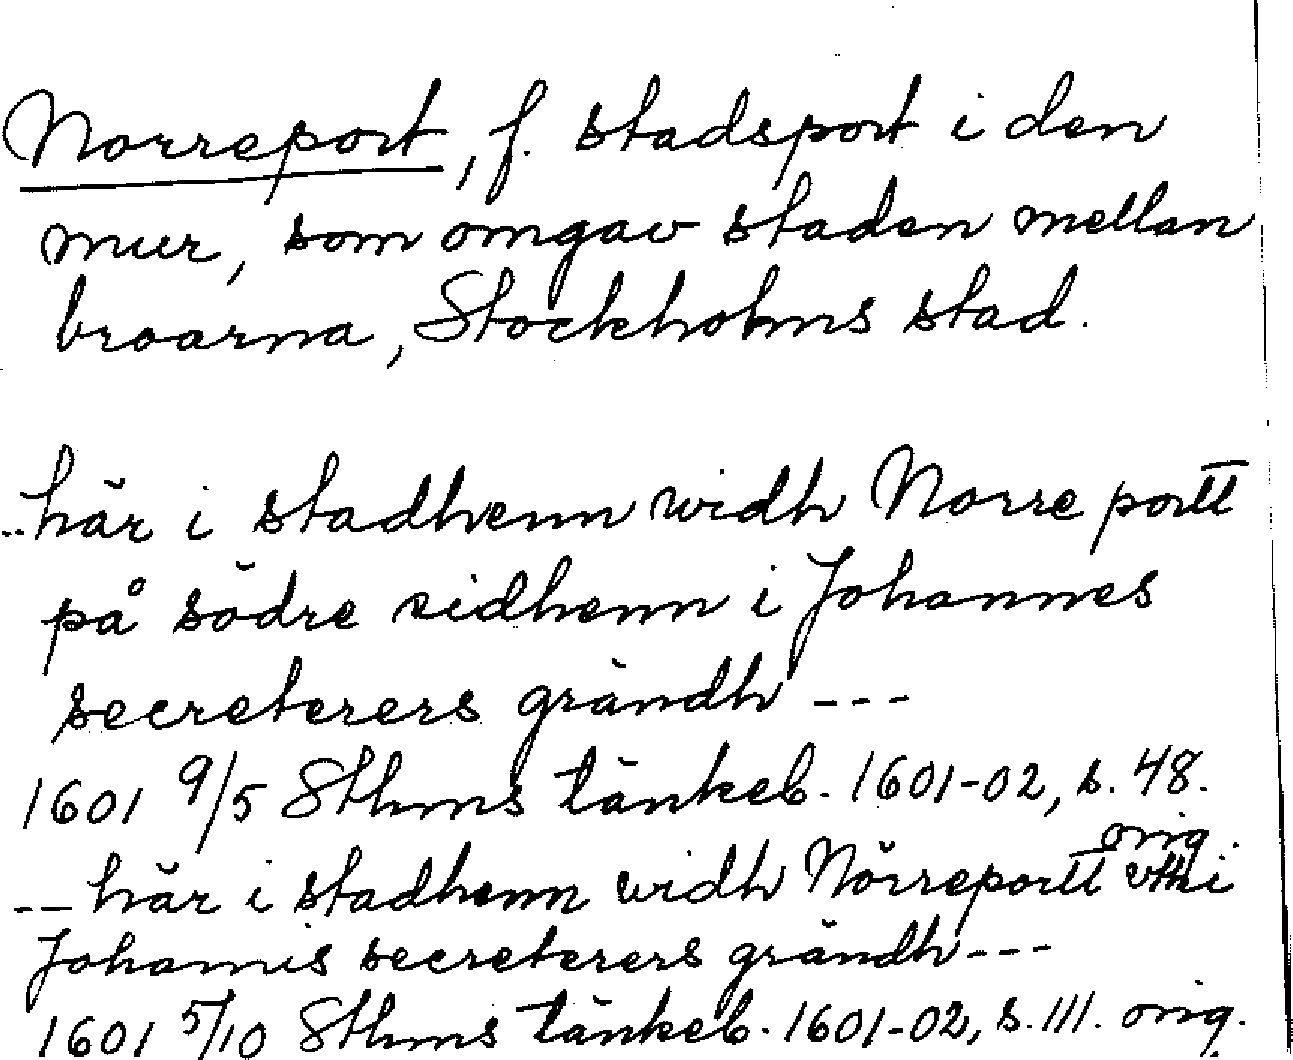 Norreport, f. stadsport i den
mur, som omgav staden mellan
broarna, Stockholms stad.
--här i stadhenn widh Norre portt
på södre sidhenn i Johannes
secreterers grändh ---
1601 9/5 Sthms tänkeb. 1601-02, s. 48.
orig.
-- här i stadhenn widh Nörreportt vthi
Johannis secreterers grändh ---
1601 5/10 Sthms tänkeb. 1601-02, s. 111. orig.